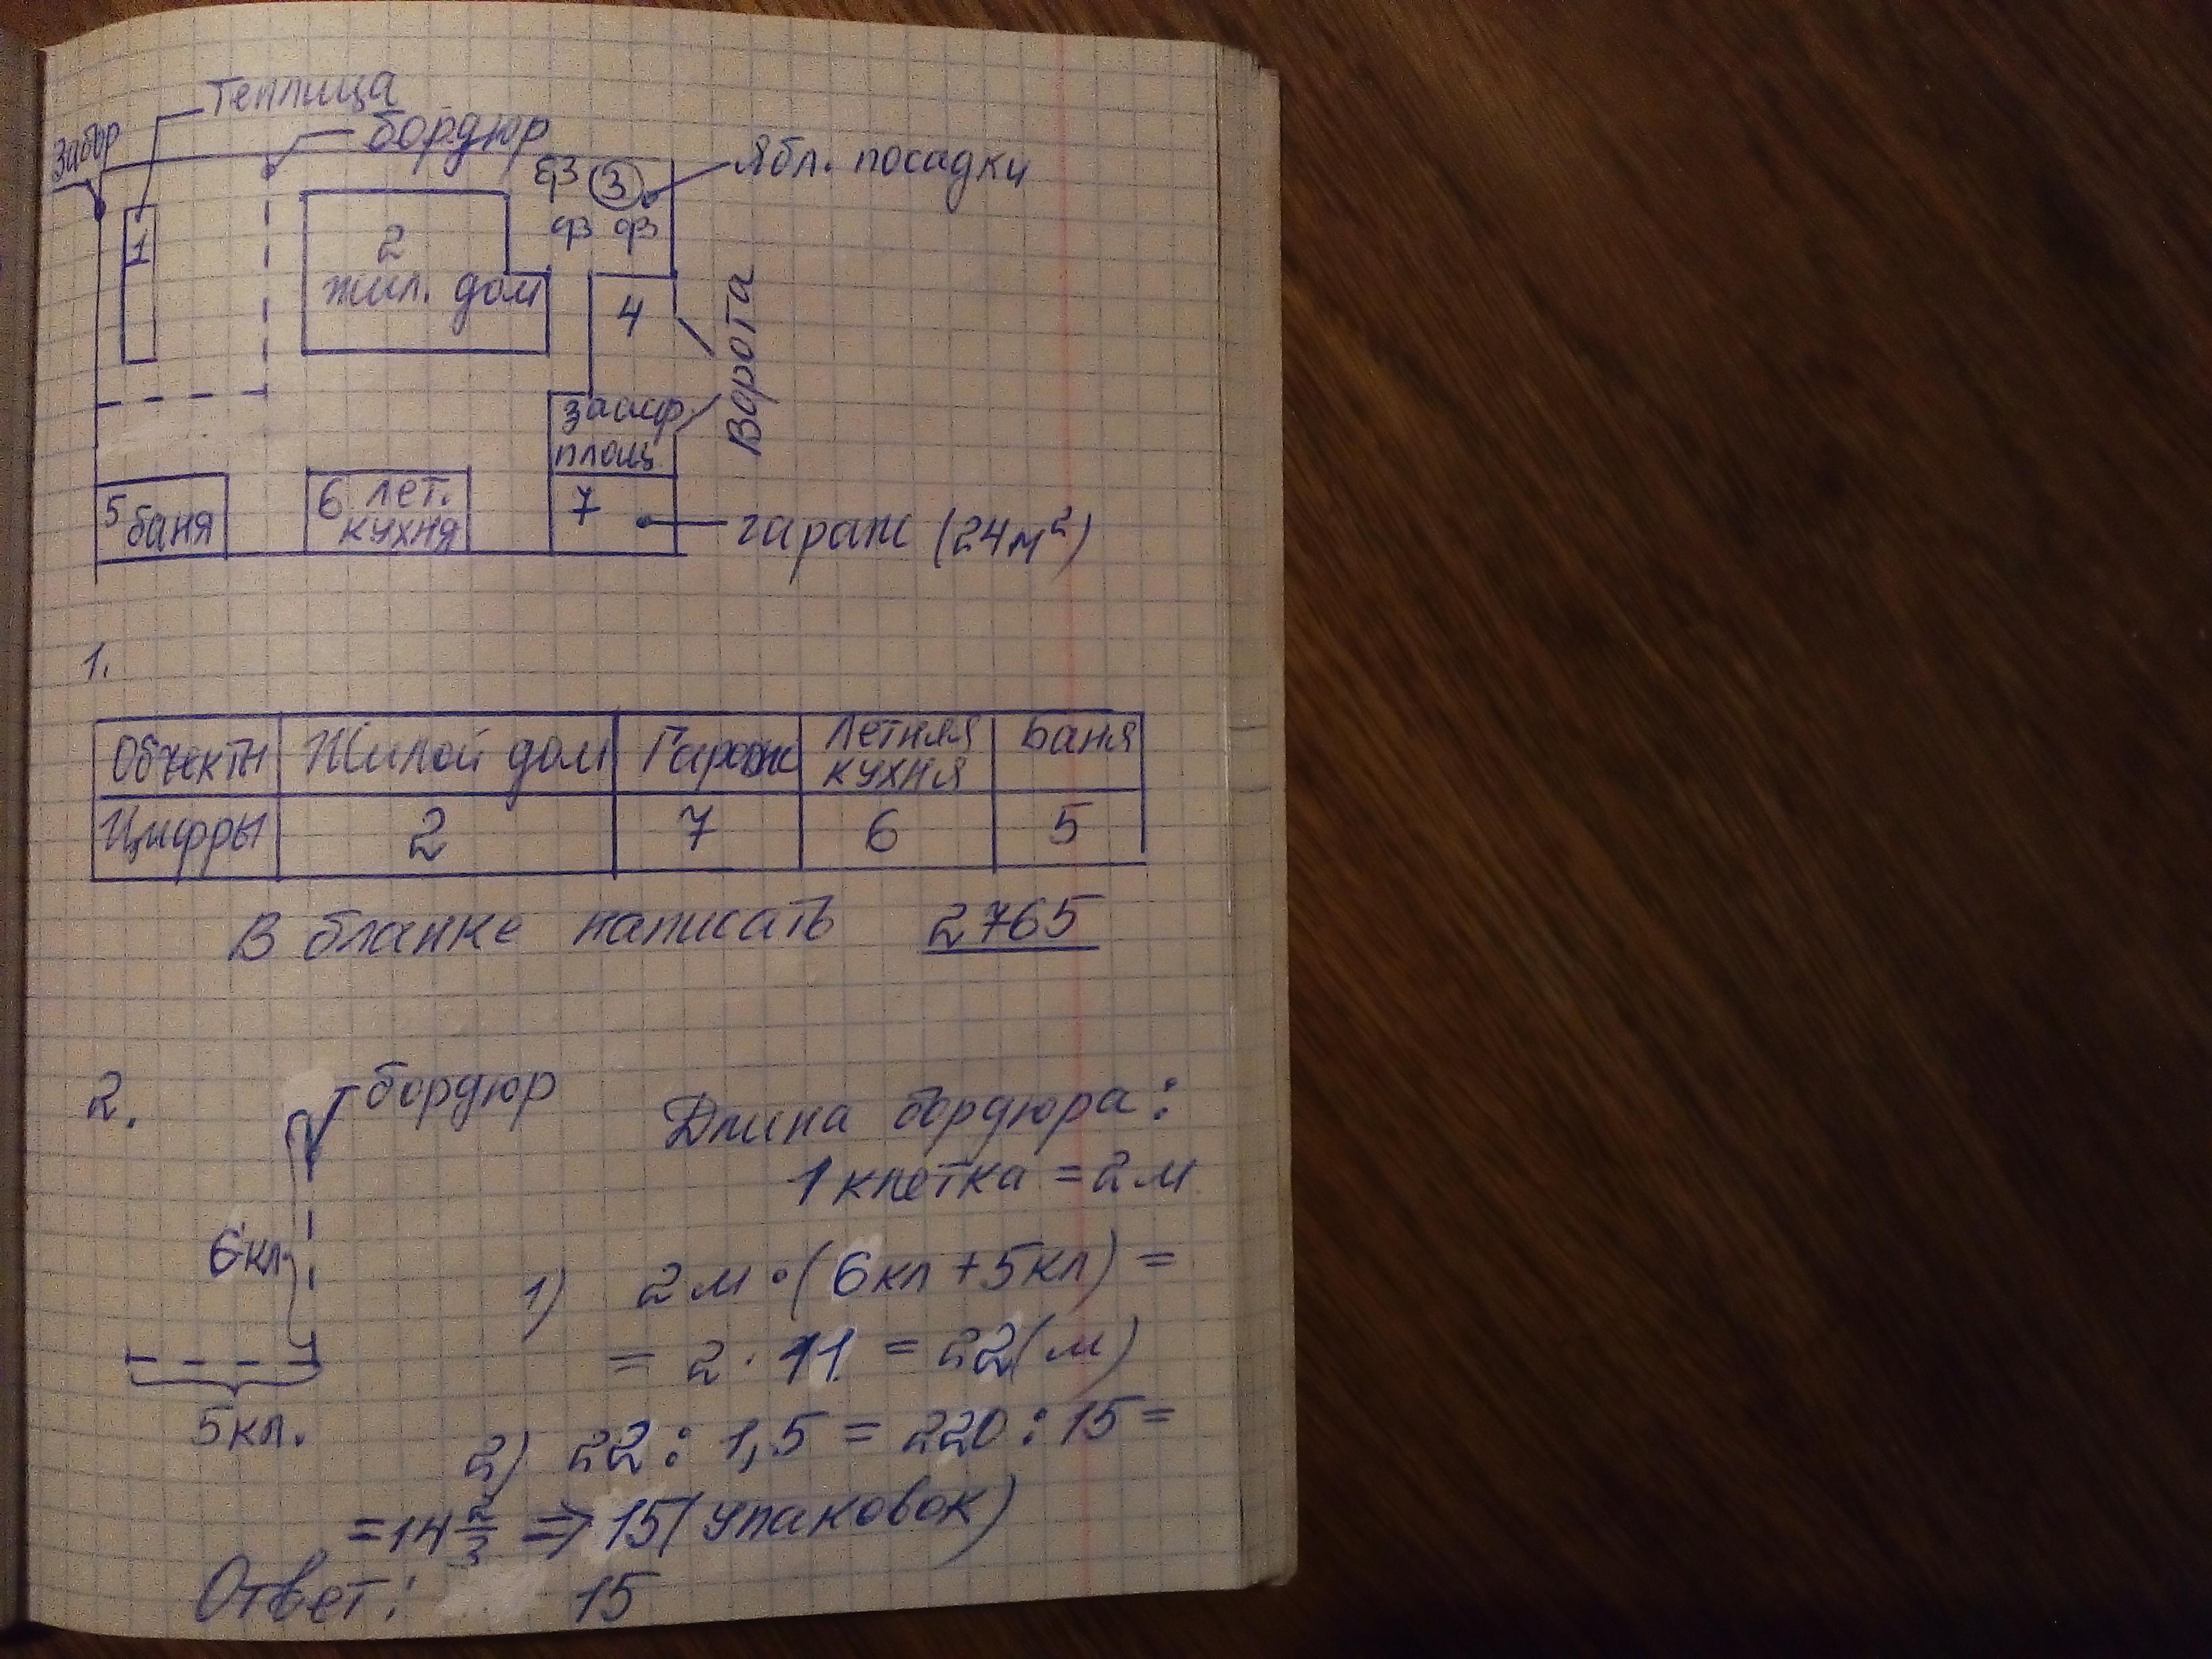 Теплица
Забор
бордюр
Ябл. посадки
3
1
2
жил. дом
4
Ворота
заасф.
площ.
5 баня
6 лет.
кухня
7
гараж (24м²)
1.
Объекты Жилой дом Гараж Летняя кухня Баня
Цифры 2 7 6 5
В бланке написать 2765
2.
бордюр
Длина бордюра:
1 клетка = 2м
6кл.
1) 2м·(6кл+5кл) =
= 2·11 = 22(м)
5кл.
2) 22 : 1,5 = 220 : 15 =
= 14 2/3 ⇒ 15(упаковок)
Ответ: 15